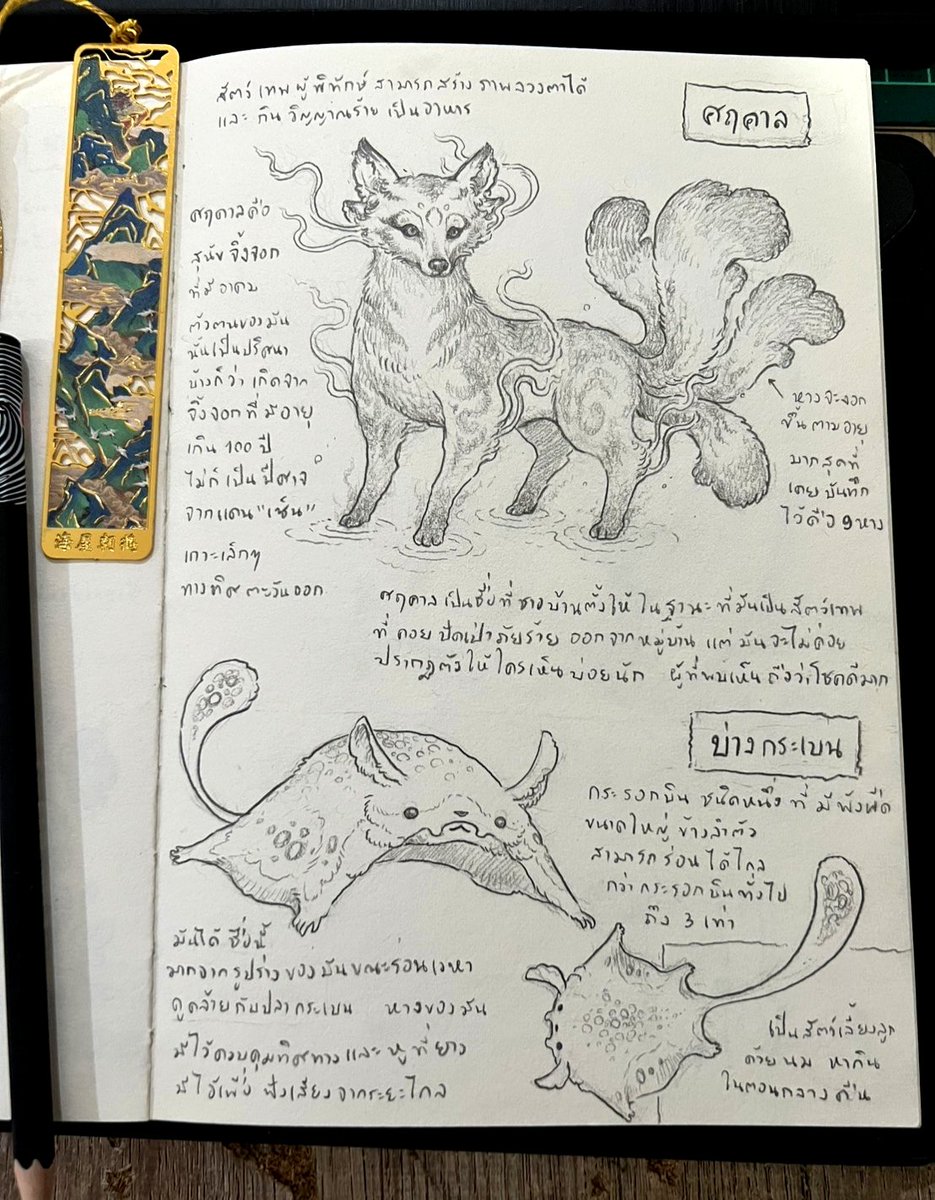 สัตว์เทพผู้พิทักษ์ สามารถสร้างภาพลวงตาได้
และ กินวิญญาณร้าย เป็นอาหาร
ศฤคาล
ศฤคาลคือ
สุนัขจิ้งจอก
ที่มีอาคม
ตัวตนของมัน
นั้นเป็นปริศนา
บ้างก็ว่า เกิดจาก
จิ้งจอกที่มีอายุ
เกิน 100 ปี
ไม่ก็เป็นปีศาจ
จากแดน "เซ็น"
เกาะเล็กๆ
ทางทิศตะวันออก
หางจะงอก
ขึ้นตามอายุ
มากสุดที่
เคยบันทึก
ไว้คือ 9 หาง
ศฤคาลเป็นชื่อที่ชาวบ้านตั้งให้ ในฐานะที่มันเป็นสัตว์เทพ
ที่คอยปัดเป่าภัยร้าย ออกจากหมู่บ้าน แต่มันจะไม่ค่อย
ปรากฏตัวให้ใครเห็นบ่อยนัก ผู้ที่พบเห็นถือว่าโชคดีมาก
บ่างกระเบน
กระรอกบิน ชนิดหนึ่ง ที่มีพังผืด
ขนาดใหญ่ ข้างลำตัว
สามารถร่อนได้ไกล
กว่ากระรอกบินทั่วไป
ถึง 3 เท่า
มันได้ชื่อนี้
มาจากรูปร่างของมันขณะร่อนเวหา
ดูคล้ายกับปลากระเบน หางของมัน
มีไว้ควบคุมทิศทางและ หูที่ยาว
มีไว้เพื่อ ฟังเสียงจากระยะไกล
เป็นสัตว์เลี้ยงลูก
ด้วยนม หากิน
ในตอนกลางคืน